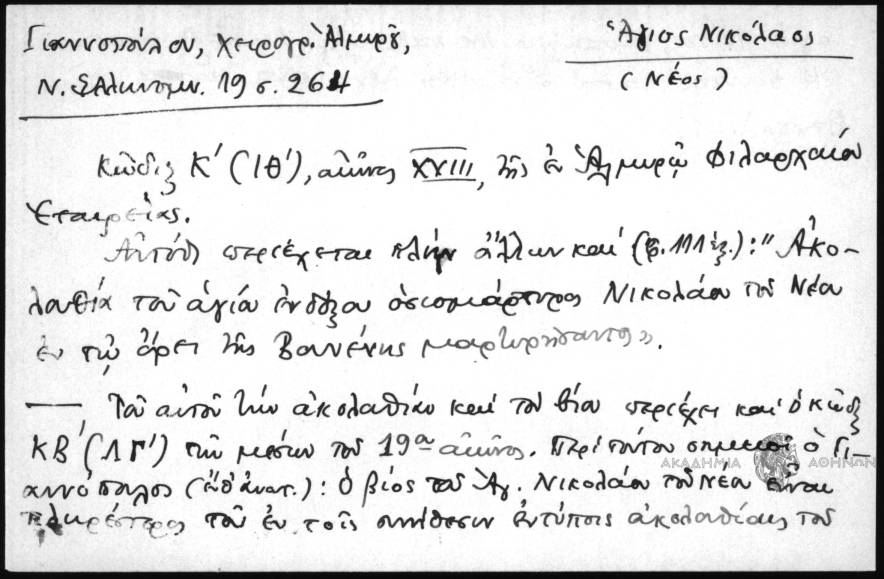 Γιαννοπούλου, χειρογρ. Ἁλμυρȣ͂,
Ν. Ἑλληνομν. 19 σ. 264
Ἅγιος Νικόλαος
(Νέος)
Κῶδιξ Κ' (ΙΘ'), αἰῶνος XVIII, τῆς ἐν Ἁλμυρῷ Φιλαρχαίου
Ἑταιρείας.
Αὐτόθι περιέχεται πλὴν ἄλλων καὶ (φ. 111 ἑξ.): "Ἀκο-
λουθία τοῦ ἁγίου ἐνδόξου ὁσιομάρτυρος Νικολάου τοῦ Νέου
ἐν τῷ ὄρει τῆς Βουνένης μαρτυρήσαντος».
— Τοῦ αὐτοῦ τὴν ἀκολουθίαν καὶ τὸν βίον περιέχει καὶ ὁ κῶδιξ
ΚΒ' (ΛΓ') τῶν μέσων τοῦ 19ου αἰῶνος. Περὶ τούτου σημειοῖ ὁ Γι-
αννόπουλος (ἔνθ' ἀνωτ.): Ὁ βίος τοῦ Ἁγ. Νικολάου τοῦ Νέου εἶναι
πληρέστερος τοῦ ἐν τοῖς συνήθεσιν ἐντύποις ἀκολουθίαις τοῦ
ΑΚΑΔΗΜΙΑ ΑΘΗΝΩΝ